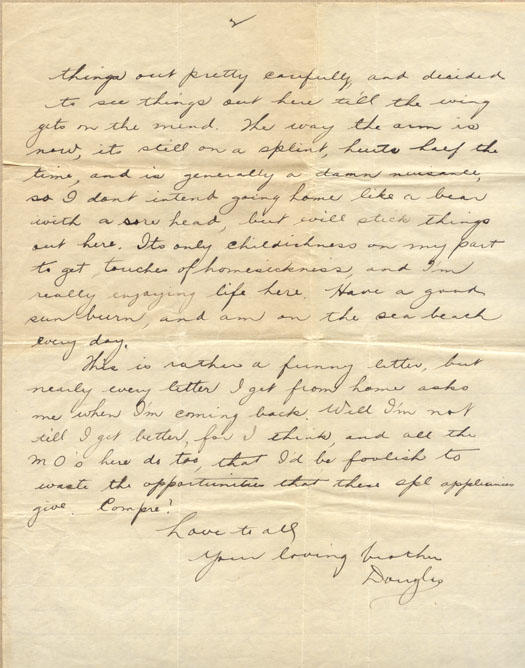 2
things out pretty carefully, and decided
to see things out here till the wing
gets on the mend. The way the arm is
now, its still on a splint, hurts half the
time, and is generally a damn nuisance,
so I dont intend going home like a bear
with a sore head, but will stick things
out here. Its only childishness on my part
to get touches of homesickness, and I'm
really enjoying life here. Have a good
sun burn, and am on the sea beach
every day.
This is rather a funny letter, but
nearly every letter I get from home asks
me when I'm coming back. Well I'm not
till I get better, for I think, and all the
M O's here do too, that I'd be foolish to
waste the opportunities that these spl appliances
give. Compre?
Love to all
Your loving brother
Douglas